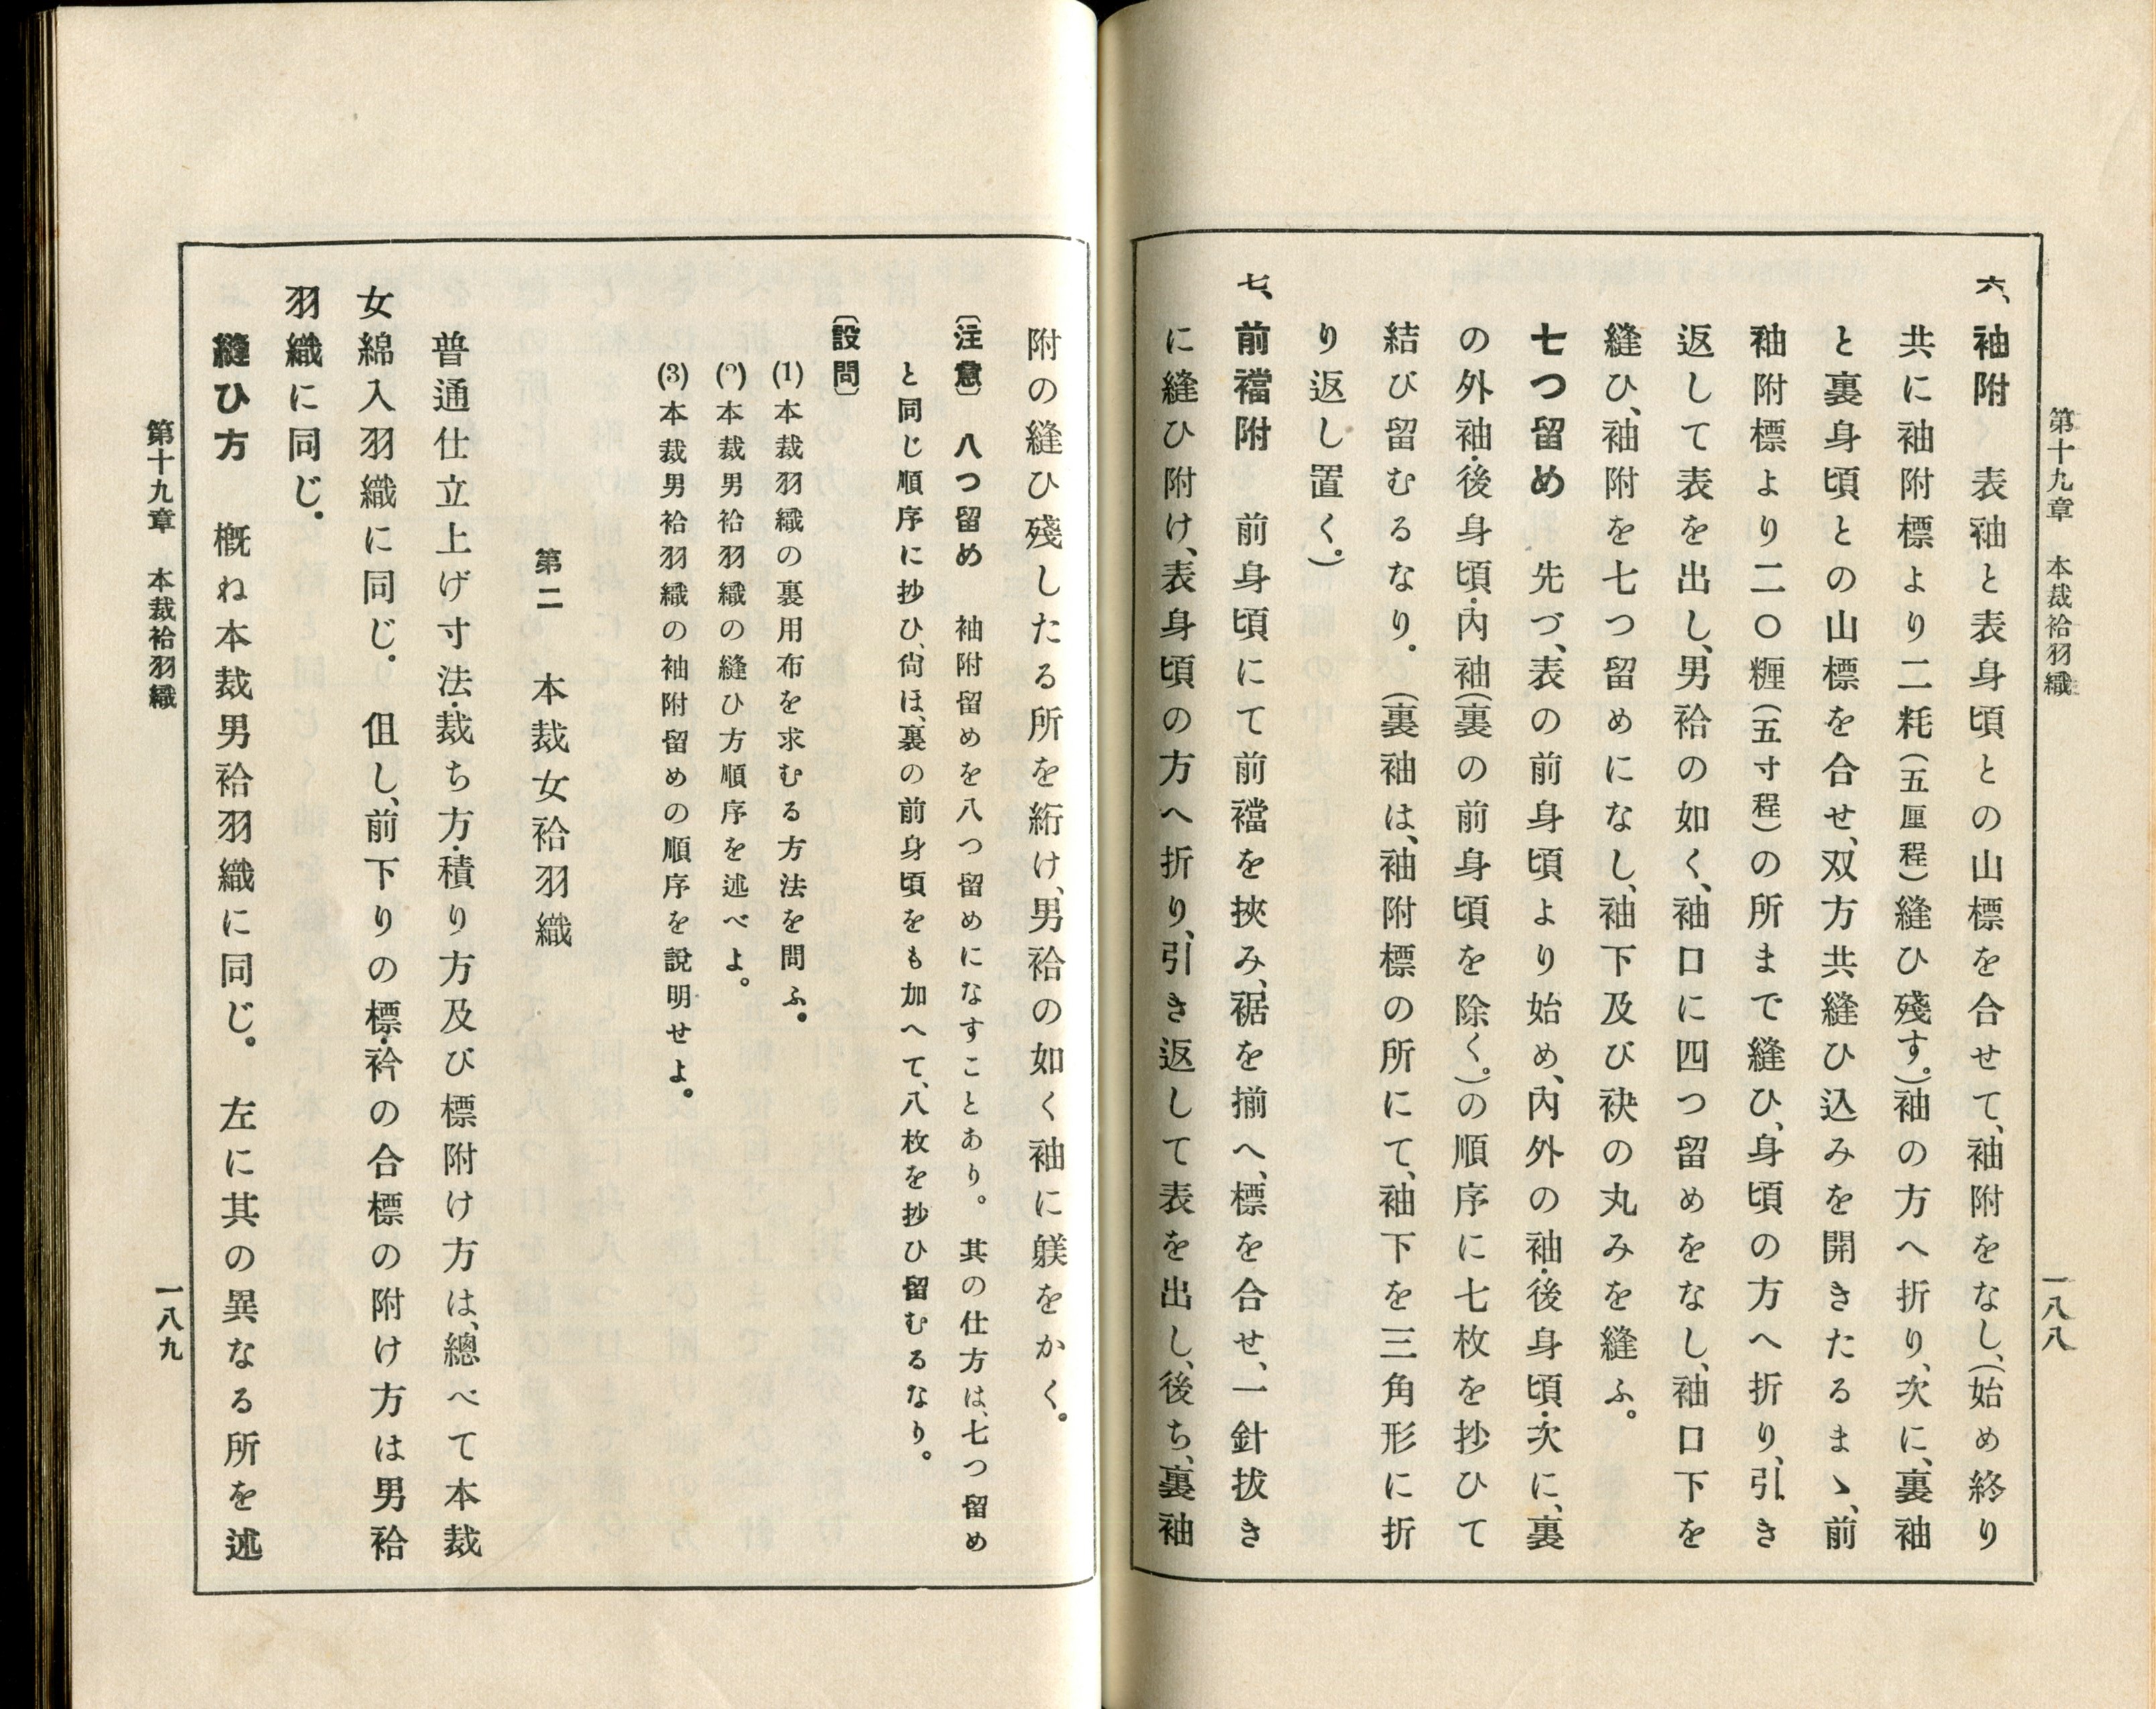 第十九章　本裁袷羽織
一八八
六、袖附　表袖と表身頃との山標を合せて、袖附をなし、(始め終り
共に袖附標より二粍(五厘程)縫ひ殘す。)袖の方へ折り、次に、裏袖
と裏身頃との山標を合せ、双方共縫ひ込みを開きたるまゝ、前
袖附標より二〇糎(五寸程)の所まで縫ひ、身頃の方へ折り、引き
返して表を出し、男袷の如く、袖口に四つ留めをなし、袖口下を
縫ひ、袖附を七つ留めになし、袖下及び袂の丸みを縫ふ。
七つ留め　先づ、表の前身頃より始め、內外の袖・後身頃・次に、裏
の外袖・後身頃・內袖(裏の前身頃を除く。)の順序に七枚を抄ひて
結び留むるなり。(裏袖は、袖附標の所にて、袖下を三角形に折
り返し置く。)
七、前襠附　前身頃にて前襠を挾み、裾を揃へ、標を合せ、一針拔き
に縫ひ附け、表身頃の方へ折り、引き返して表を出し、後ち、裏袖
附の縫ひ殘したる所を絎け、男袷の如く袖に躾をかく。
〔注意〕　八つ留め　袖附留めを八つ留めになすことあり。其の仕方は、七つ留め
と同じ順序に抄ひ、尙ほ、裏の前身頃をも加へて、八枚を抄ひ留むるなり。
〔設問〕
(1)本裁羽織の裏用布を求むる方法を問ふ。
(2)本裁男袷羽織の縫ひ方順序を述べよ。
(3)本裁男袷羽織の袖附留めの順序を說明せよ。
第二　本裁女袷羽織
普通仕立上げ寸法・裁ち方・積り方及び標附け方は、總べて本裁
女綿入羽織に同じ。伹し、前下りの標・衿の合標の附け方は男袷
羽織に同じ。
縫ひ方　槪ね本裁男袷羽織に同じ。左に其の異なる所を述
第十九章　本裁袷羽織
一八九